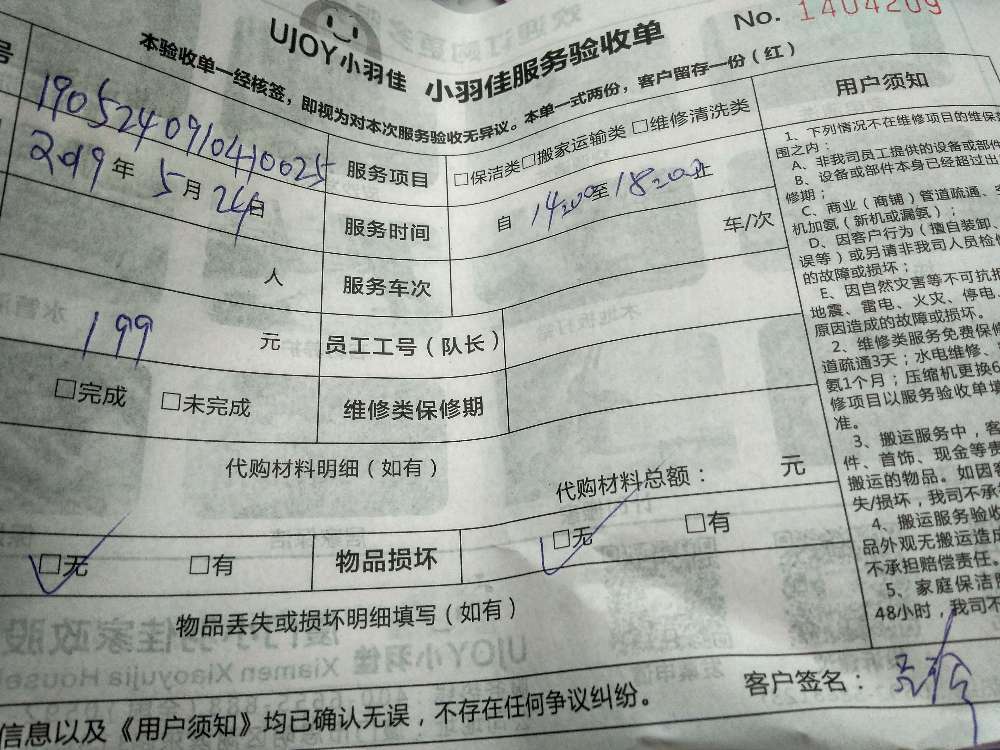 UJOY小羽佳 小羽佳服务验收单 No. 1404209
本验收单一经核签，即视为对本次服务验收无异议。本单一式两份，客户留存一份（红）
号 1905240910410025 服务项目 □保洁类□搬家运输类 □维修清洗类
2019年 5月 24日 服务时间 自 1420至1820止
人 服务车次 车/次
199 元 员工工号（队长）
□完成 □未完成 维修类保修期
代购材料明细（如有） 代购材料总额： 元
□无 □有 物品损坏 □无 □有
物品丢失或损坏明细填写（如有）
信息以及《用户须知》均已确认无误，不存在任何争议纠纷。 客户签名：
用户须知
1、下列情况不在维修项目的维保
围之内：
A、非我司员工提供的设备或部件
B、设备或部件本身已经超过出
修期；
C、商业（商铺）管道疏通、
机加氨（新机或漏氨）；
D、因客户行为（擅自装卸、
误等）或另请非我司人员检
的故障或损坏；
E、因自然灾害等不可抗
地震、雷电、火灾、停电
原因造成的故障或损坏。
2、维修类服务免费保
道疏通3天；水电维修、
氨1个月；压缩机更换6
修项目以服务验收单填
准。
3、搬运服务中，客
件、首饰、现金等贵
搬运的物品。如因客
失/损坏，我司不承
4、搬运服务验收
品外观无搬运造成
不承担赔偿责任。
5、家庭保洁
48小时，我司不